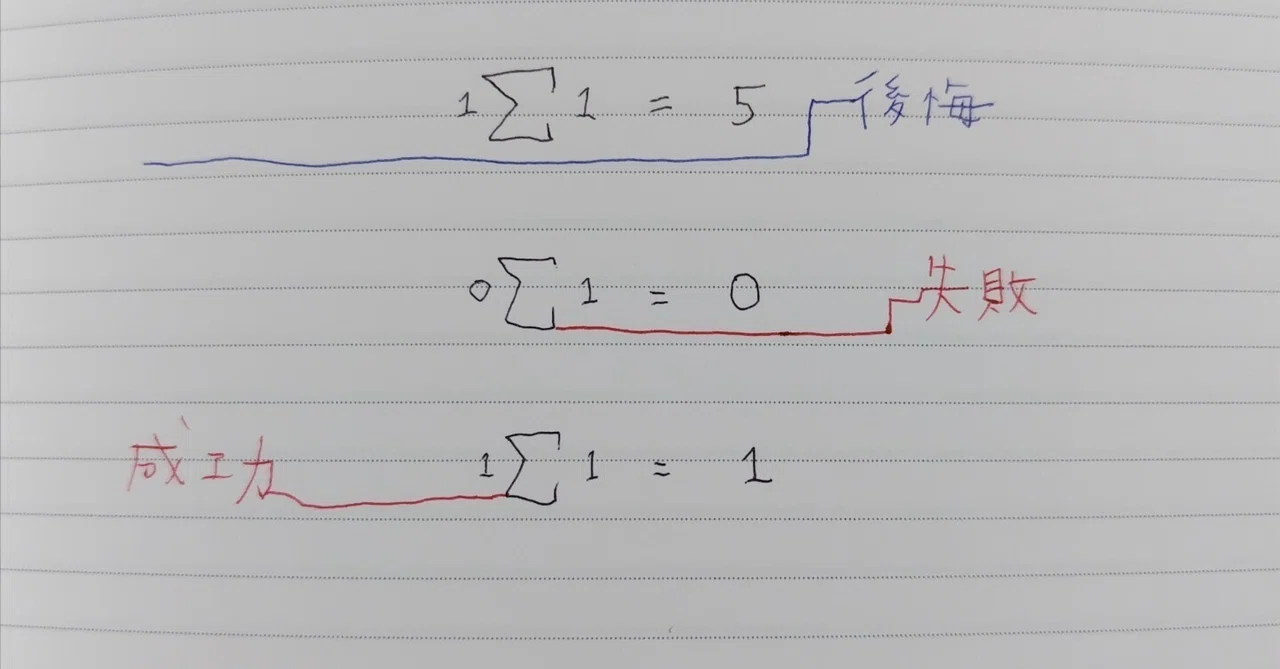 1Σ1 = 5 後悔
0Σ1 = 0 失敗
成功 1Σ1 = 1